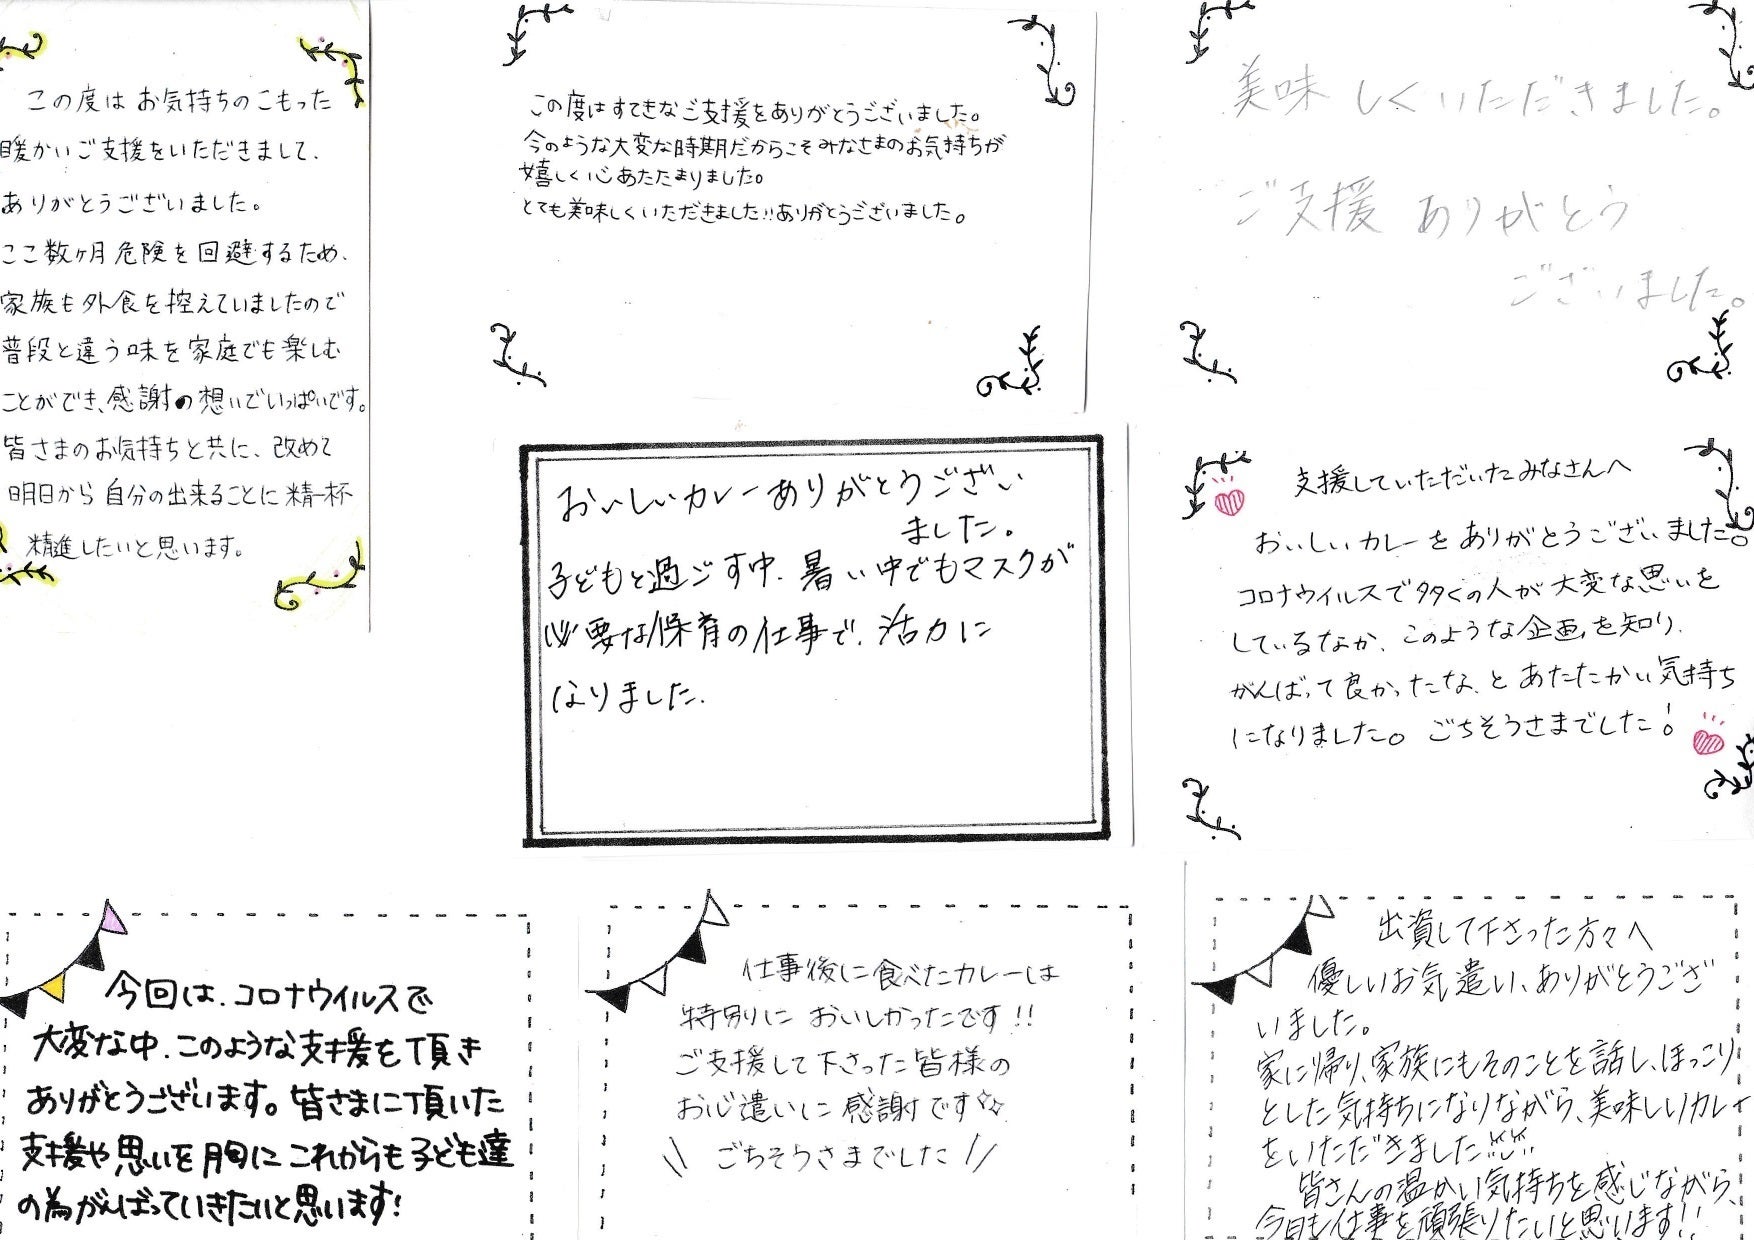 この度は お気持ちのこもった
暖かいご支援をいただきまして、
ありがとうございました。
ここ数ヶ月危険を回避するため、
家族も外食を控えていましたので
普段と違う味を家庭でも楽しむ
ことができ、感謝の想いでいっぱいです。
皆さまのお気持ちと共に、改めて
明日から自分の出来ることに精一杯
精進したいと思います。
この度はすてきなご支援をありがとうございました。
今のような大変な時期だからこそみなさまのお気持ちが
嬉しく心あたたまりました。
とても美味しくいただきました!!ありがとうございました。
美味しくいただきました。
ご支援 ありがとう
ございました。
おいしいカレーありがとうござい
ました。
子どもと過ごす中、暑い中でもマスクが
必要な保育の仕事で、活力に
なりました。
支援していただいたみなさんへ
おいしいカレーをありがとうございました。
コロナウイルスで多くの人が大変な思いを
しているなか、このような企画を知り、
がんばって良かったな、とあたたかい気持ち
になりました。ごちそうさまでした!
今回は、コロナウイルスで
大変な中、このような支援を頂き
ありがとうございます。皆さまに頂いた
支援や思いを胸にこれからも子ども達
の為がんばっていきたいと思います!
仕事後に食べたカレーは
特別に おいしかったです!!
ご支援して下さった皆様の
お心遣いに感謝です☆
\\ ごちそうさまでした //
出資して下さった方々へ
優しいお気遣い、ありがとうござ
いました。
家に帰り、家族にもそのことを話し、ほっこり
とした気持ちになりながら、美味しいカレー
をいただきました
皆さんの温かい気持ちを感じながら、
今日も仕事を頑張りたいと思います!!